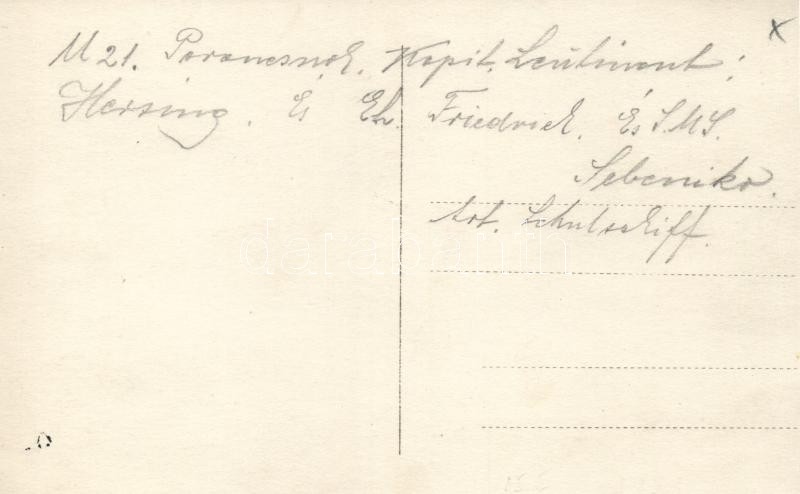 U 21. Parancsnok. Kapit. Leutinent:
Hersing. És Eh. Friedrich. És S.M.S.
Sebeniko.
Art. Schulschiff.